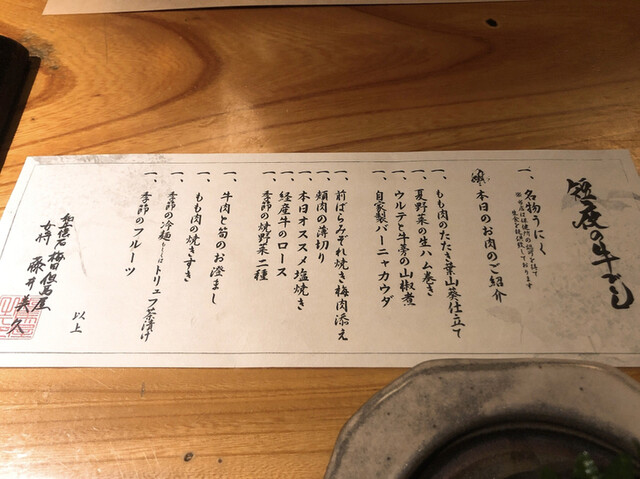 短夜の牛づくし
一、名物うにく
※当店は保健所の認可を得て
生食を提供致しております
本日のお肉のご紹介
一、もも肉のたたき葉山葵仕立て
一、夏野菜の生ハム巻き
一、ウルテと牛蒡の山椒煮
一、自家製バーニャカウダ
一、前ばらみぞれ焼き梅肉添え
一、頬肉の薄切り
一、本日オススメ塩焼き
一、経産牛のロース
一、季節の焼野菜二種
一、牛肉と筍のお澄まし
一、もも肉の焼きすき
一、季節の冷麺もしくはトリュフ茶漬け
一、季節のフルーツ
以上
但馬屋
女将 藤井美久